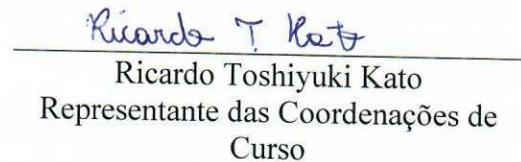 Ricardo T. Kato
Ricardo Toshiyuki Kato
Representante das Coordenações de
Curso